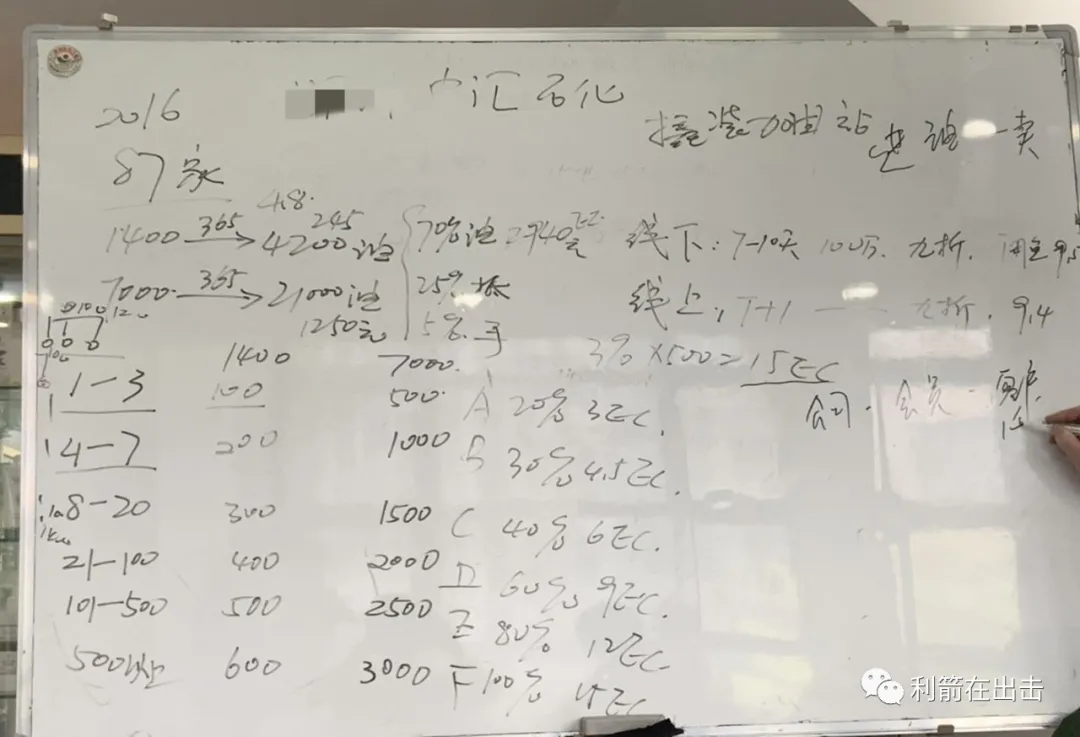 2016 中汇石化
撬装加油站
进油一卖
87家
4.8.
1400 365 → 4200油 245
7000 365 → 21000油
1250元
70%油 2940
25%
5%
线下：7-10天 100万. 九折. 9.5
线上：T+1 —— 九折. 9.4
3% × 500 = 15EC
公司 · 会员 ·
1400 7000
1-3 100 500 A 20% 3EC.
4-7 200 1000 B 30% 4.5EC.
8-20 300 1500 C 40% 6EC.
21-100 400 2000 D 60% 9EC.
101-500 500 2500 E 80% 12EC
500以上 600 3000 F 100% 15EC
利箭在出击